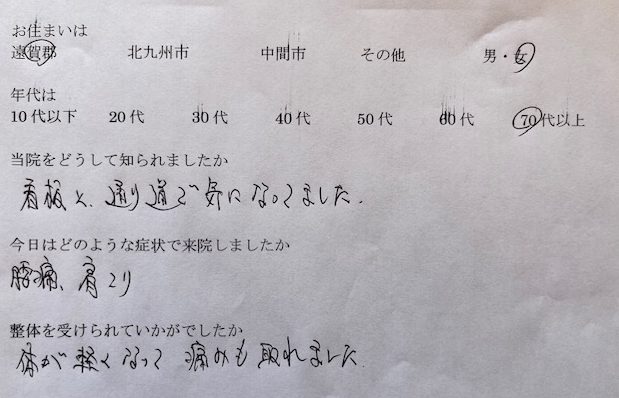 お住まいは
遠賀郡 北九州市 中間市 その他 男・女
年代は
10代以下 20代 30代 40代 50代 60代 70代以上
当院をどうして知られましたか
看板と、通り道で気になってました。
今日はどのような症状で来院しましたか
腰痛、肩こり
整体を受けられていかがでしたか
体が軽くなって 痛みも取れました。